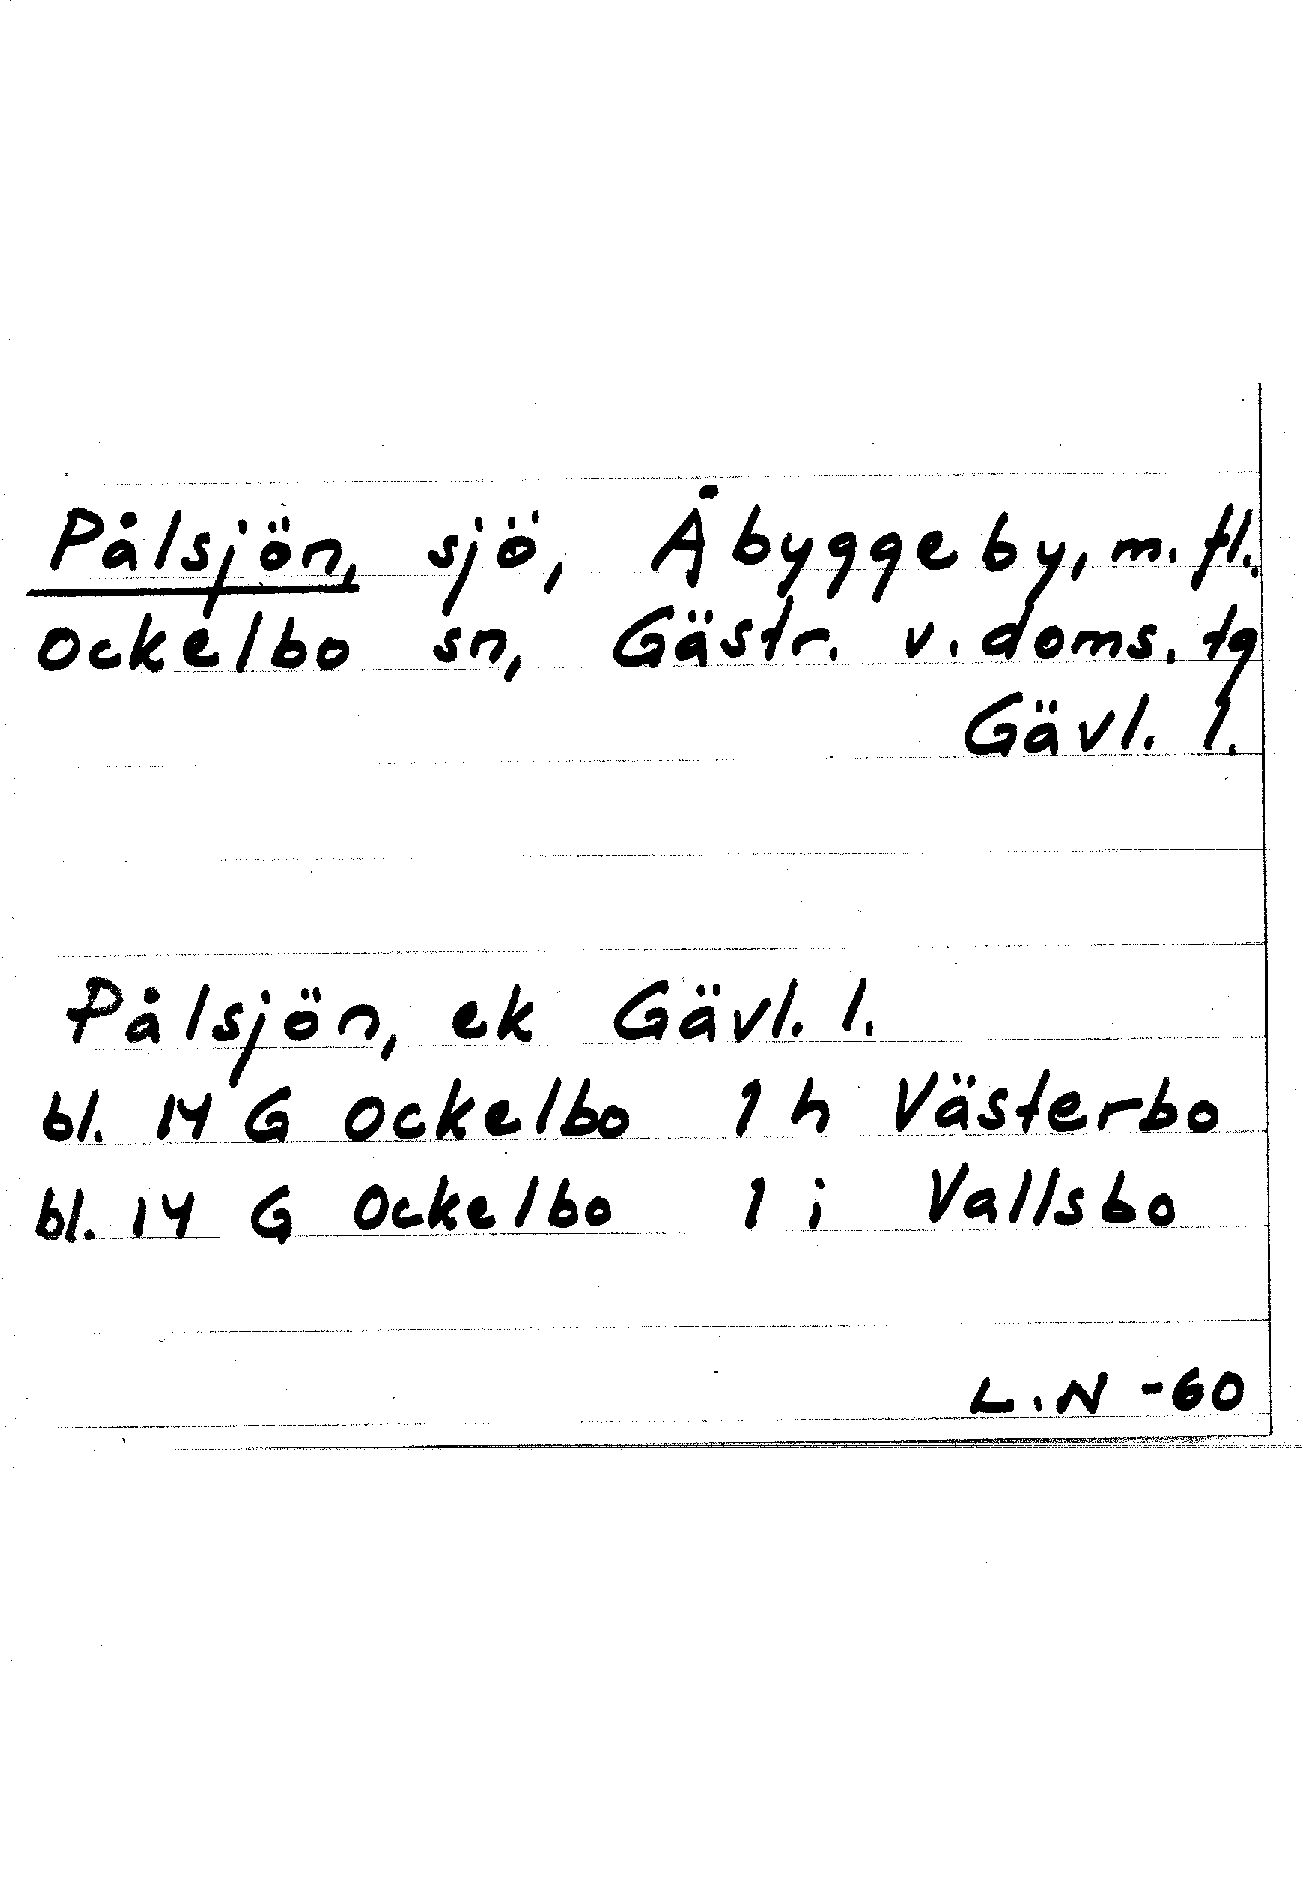 Pålsjön, sjö, Åbyggeby, m. fl.
Ockelbo sn, Gästr. v. doms. tg
Gävl. l.
Pålsjön, ek Gävl. l.
bl. 14 G Ockelbo 1 h Västerbo
bl. 14 G Ockelbo 1 i Vallsbo
L.N -60